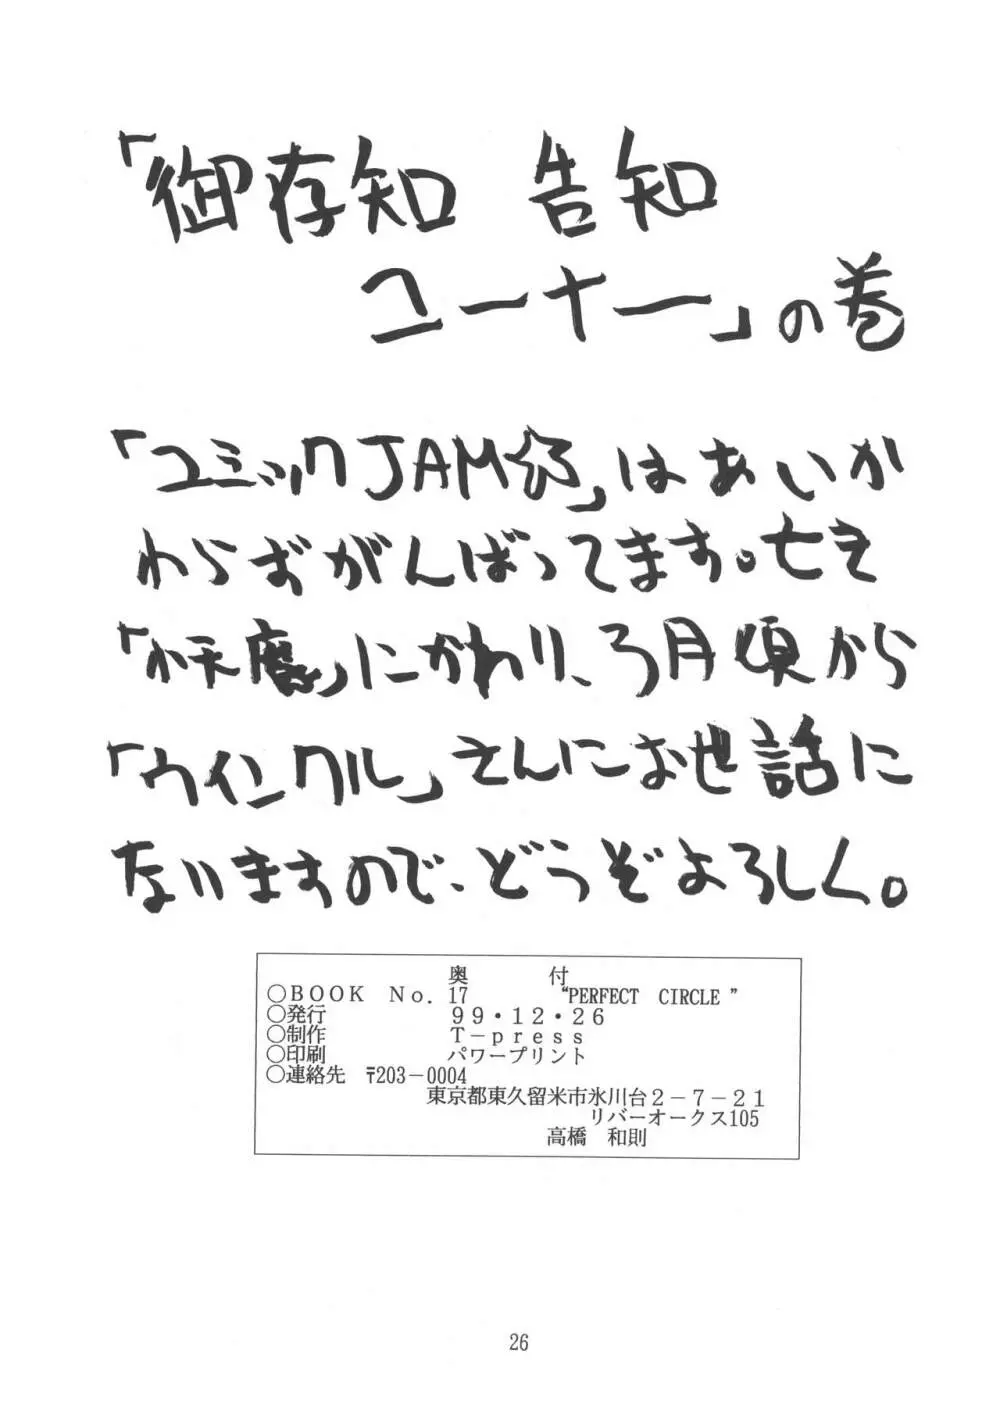 「御存知 告知
コーナー」の巻
「コミックJAM☆」はあいか
わらずがんばってます。亡き
「小天魔」にかわり、3月頃から
「ウインクル」さんにお世話に
ないますので、どうぞよろしく。
奥　付
○ＢＯＯＫ　Ｎｏ．17　“PERFECT CIRCLE ”
○発行　９９・１２・２６
○制作　Ｔ－ｐｒｅｓｓ
○印刷　パワープリント
○連絡先　〒203－0004
東京都東久留米市氷川台２－７－２１
リバーオークス105
高橋　和則
26